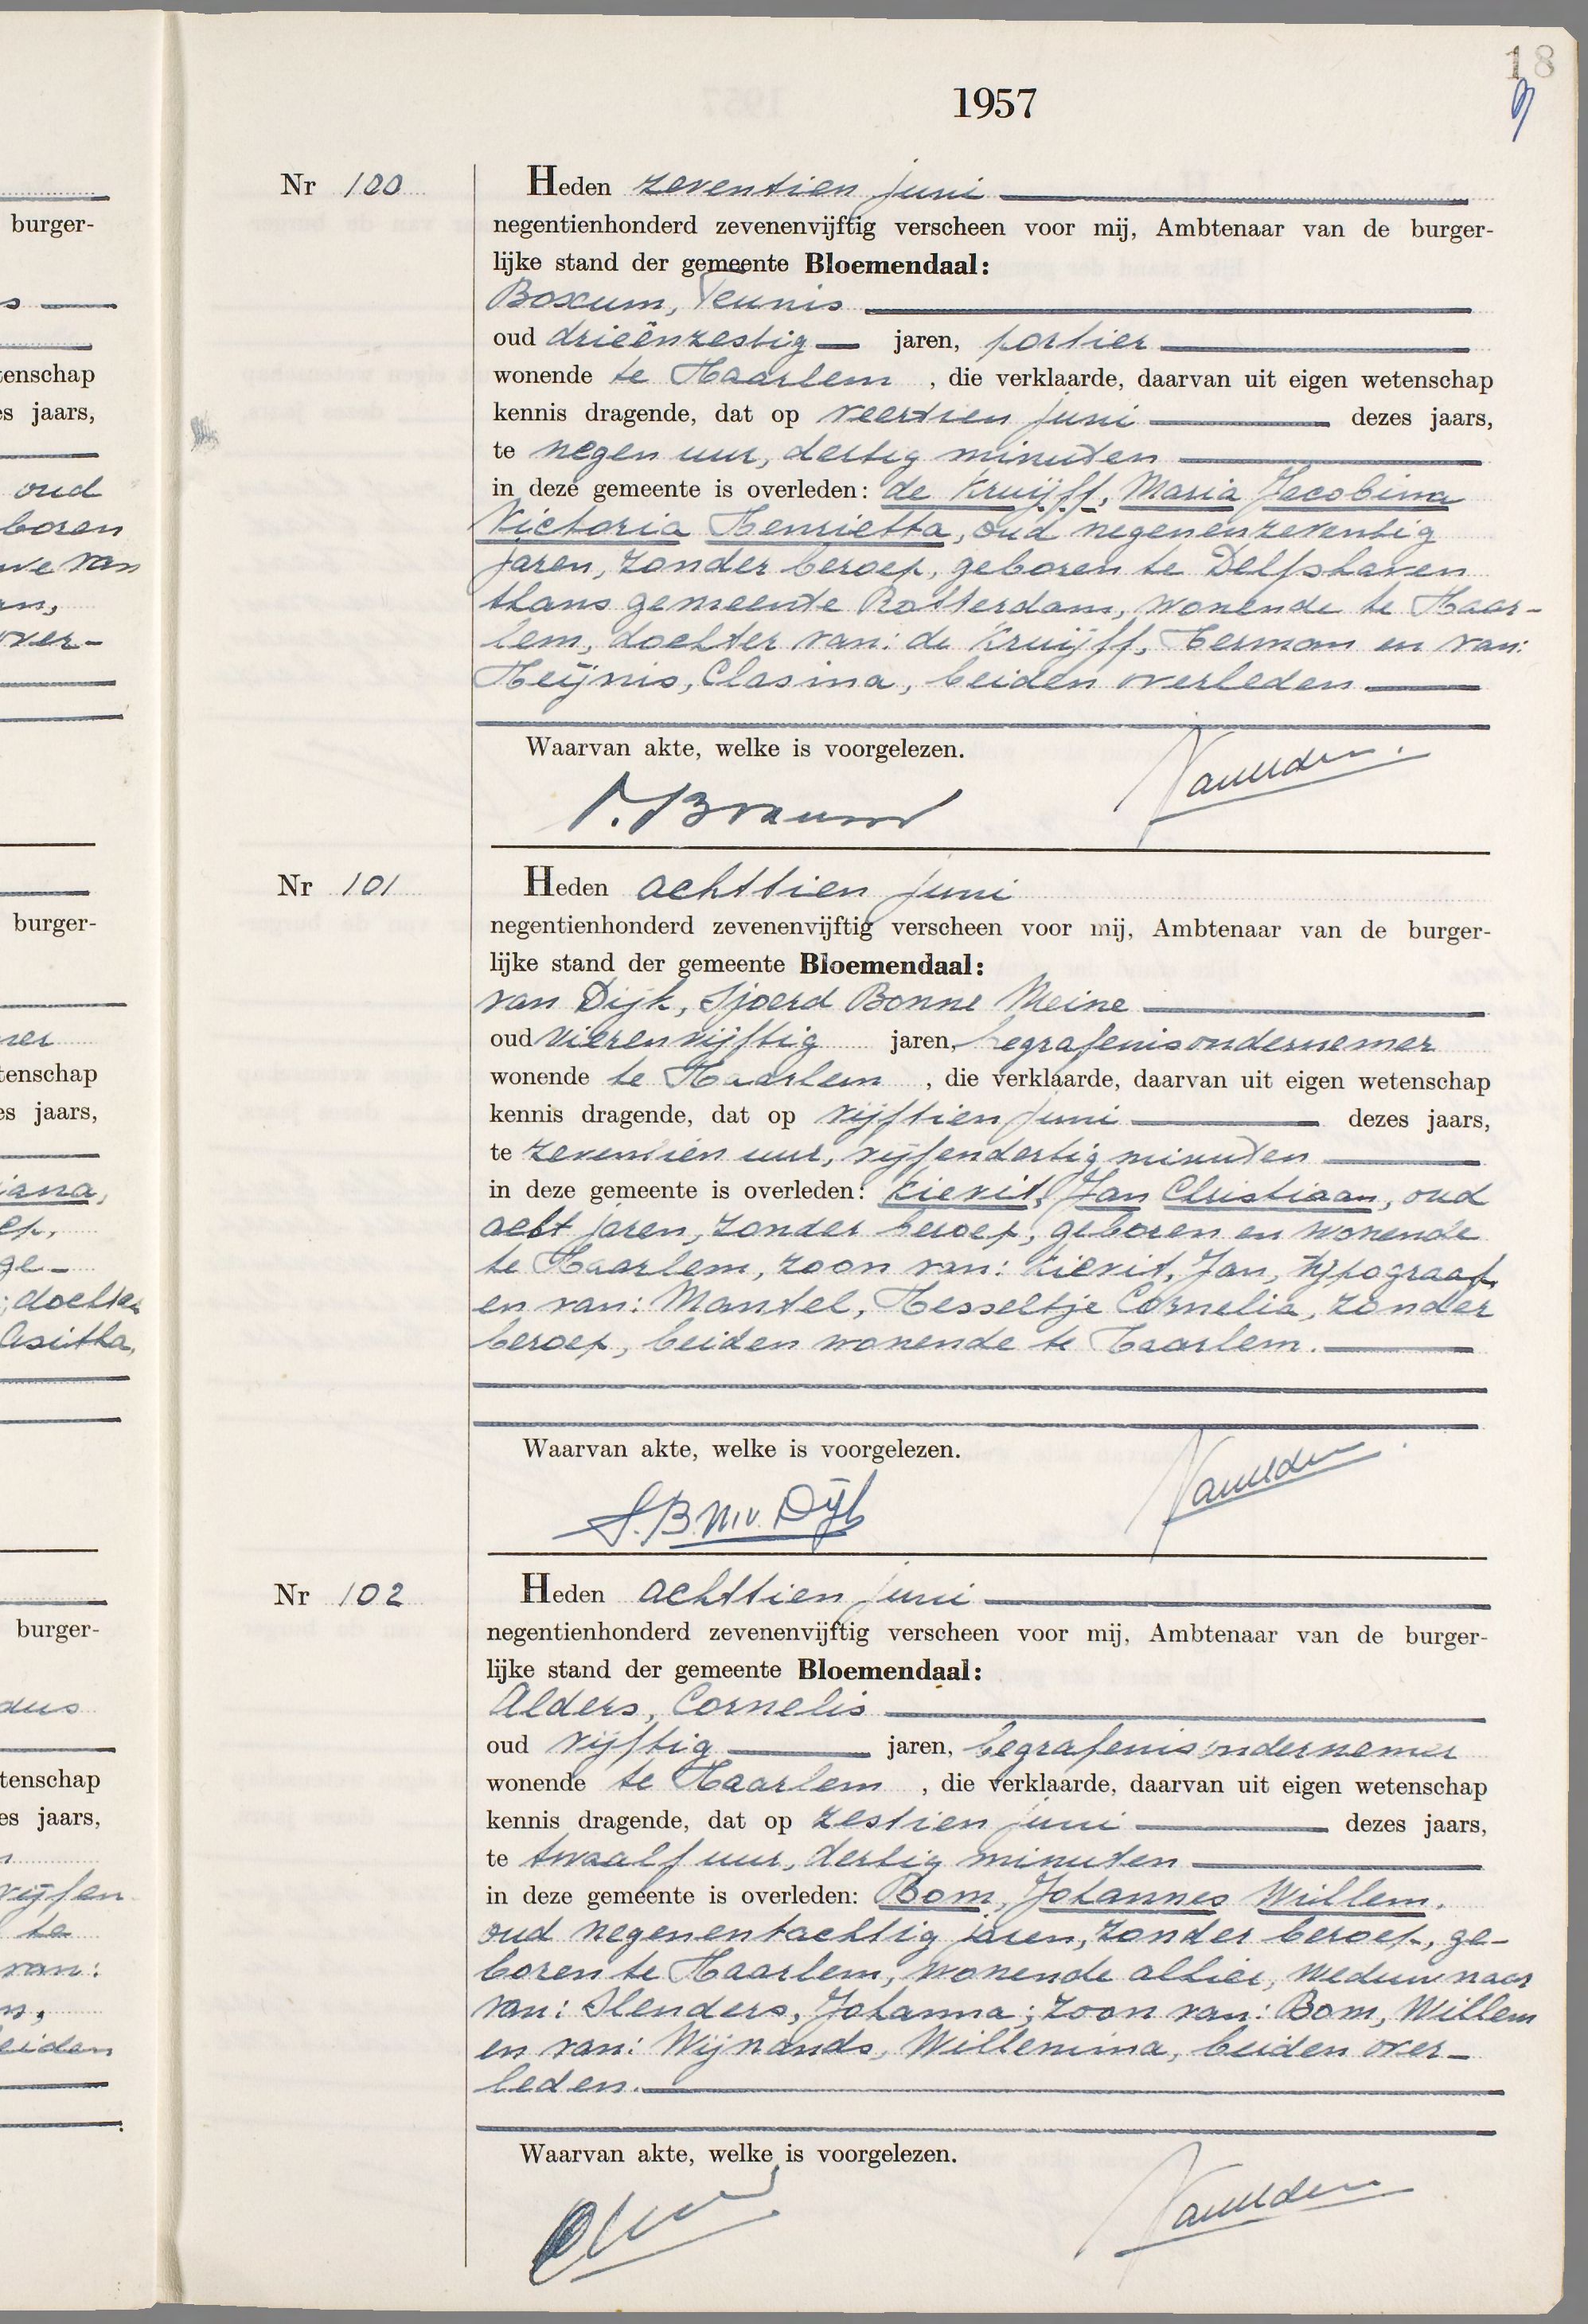 18
1957
Nr 100
Heden zeventien juni
negentienhonderd zevenenvijftig verscheen voor mij, Ambtenaar van de burger-
lijke stand der gemeente Bloemendaal:
Boxum, Teunis
oud drieënzestig jaren, portier
wonende te Haarlem, die verklaarde, daarvan uit eigen wetenschap
kennis dragende, dat op veertien juni dezes jaars,
te negen uur, dertig minuten
in deze gemeente is overleden: de Kruijff, Maria Jacobina
Victoria Henrietta, oud negenenzeventig
jaren, zonder beroep, geboren te Delfshaven
thans gemeente Rotterdam, wonende te Haar-
lem, dochter van: de Kruijff, Herman en van:
Heijnis, Clasina, beiden overleden
Waarvan akte, welke is voorgelezen.
Nr 101
Heden achttien juni
negentienhonderd zevenenvijftig verscheen voor mij, Ambtenaar van de burger-
lijke stand der gemeente Bloemendaal:
van Dijk, Sjoerd Bonne Meine
oud vierenvijftig jaren, begrafenisondernemer
wonende te Haarlem, die verklaarde, daarvan uit eigen wetenschap
kennis dragende, dat op vijftien juni dezes jaars,
te zeventien uur, vijfendertig minuten
in deze gemeente is overleden: Kievit, Jan Christiaan, oud
acht jaren, zonder beroep, geboren en wonende
te Haarlem, zoon van: Kievit, Jan, typograaf
en van: Mantel, Hesseltje Cornelia, zonder
beroep, beiden wonende te Haarlem.
Waarvan akte, welke is voorgelezen.
S.B.M.v. Dijk
Nr 102
Heden achttien juni
negentienhonderd zevenenvijftig verscheen voor mij, Ambtenaar van de burger-
lijke stand der gemeente Bloemendaal:
Alders, Cornelis
oud vijftig jaren, begrafenisondernemer
wonende te Haarlem, die verklaarde, daarvan uit eigen wetenschap
kennis dragende, dat op zestien juni dezes jaars,
te twaalf uur, dertig minuten
in deze gemeente is overleden: Bom, Johannes Willem,
oud negenentachtig jaren, zonder beroep, ge-
boren te Haarlem, wonende alhier, weduwnaar
van: Slenders, Johanna; zoon van: Bom, Willem
en van: Wijnands, Willemina, beiden over-
leden.
Waarvan akte, welke is voorgelezen.